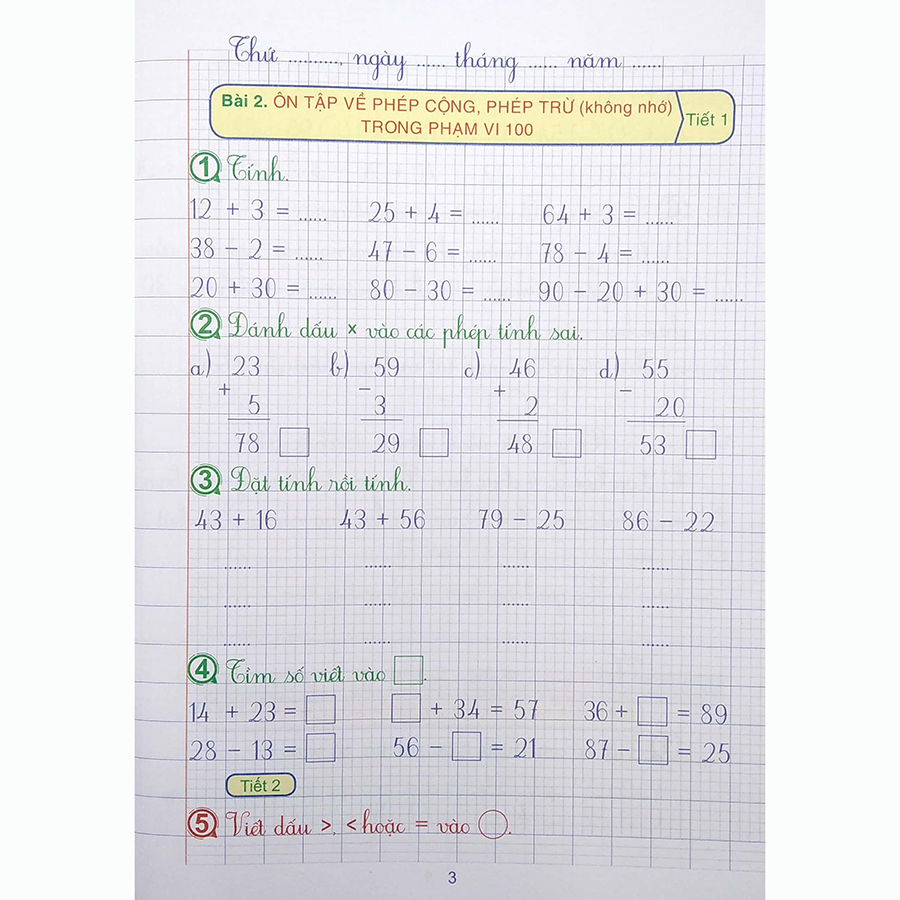 Thứ ..........., ngày ...... tháng ...... năm ......
Bài 2. ÔN TẬP VỀ PHÉP CỘNG, PHÉP TRỪ (không nhớ) Tiết 1
TRONG PHẠM VI 100
1 Tính.
12 + 3 = ...... 25 + 4 = ...... 64 + 3 = ......
38 - 2 = ...... 47 - 6 = ...... 78 - 4 = ......
20 + 30 = ...... 80 - 30 = ...... 90 - 20 + 30 = ......
2 Đánh dấu × vào các phép tính sai.
a) 23 b) 59 c) 46 d) 55
+ - + -
5 3 2 20
78 29 48 53
3 Đặt tính rồi tính.
43 + 16 43 + 56 79 - 25 86 - 22
...... ...... ...... ......
...... ...... ...... ......
...... ...... ...... ......
4 Tìm số viết vào □.
14 + 23 = □ □ + 34 = 57 36 + □ = 89
28 - 13 = □ 56 - □ = 21 87 - □ = 25
Tiết 2
5 Viết dấu >, < hoặc = vào ○.
3